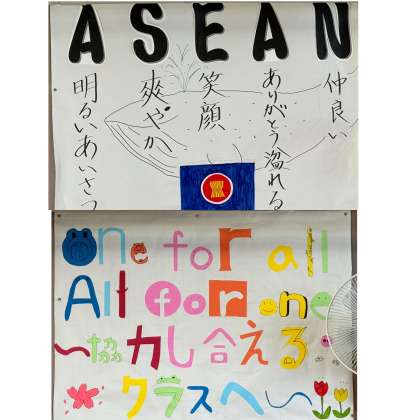 ASEAN
仲良い
ありがとう溢れる
笑顔
爽やか
明るいあいさつ
One for all
All for one
〜協力し合える
クラスへ〜